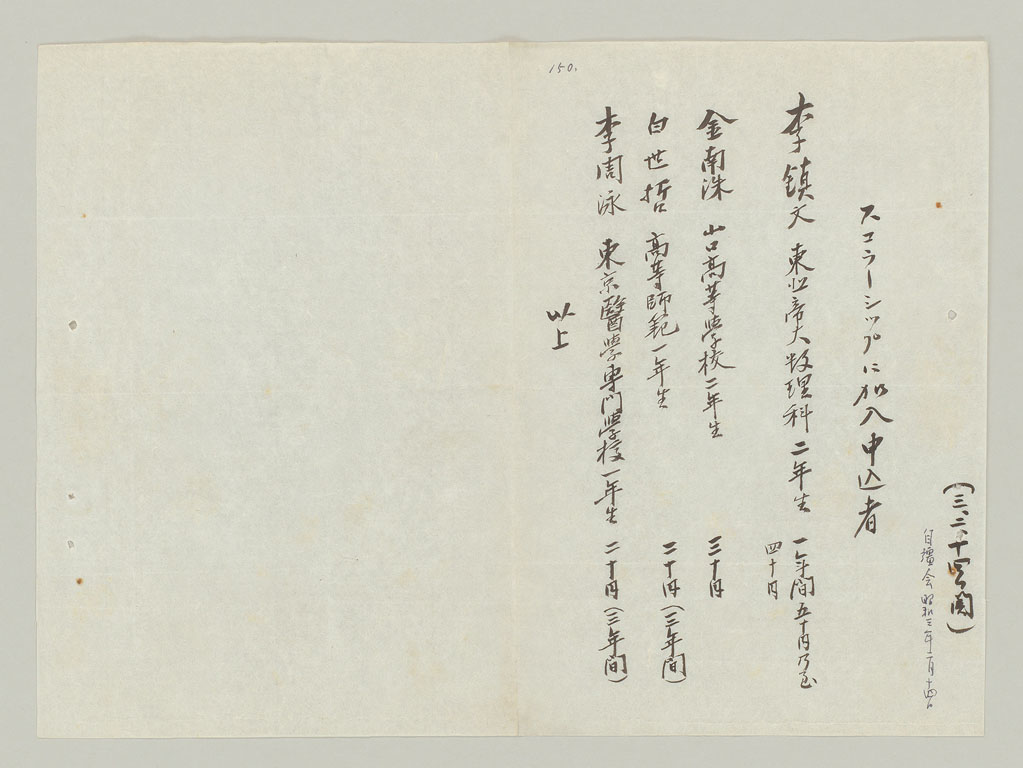 150.
(三、二、十四、関)
自檀会 昭和三年二月十四日
スコラーシップに加入申込者
李鎮文 東北帝大数理科二年生 一年間五十円乃至
四十円
金南洙 山口高等學校二年生 三十円
白世哲 高等師範一年生 二十円(三年間)
李周泳 東京醫學専門學校一年生 二十円(三年間)
以上